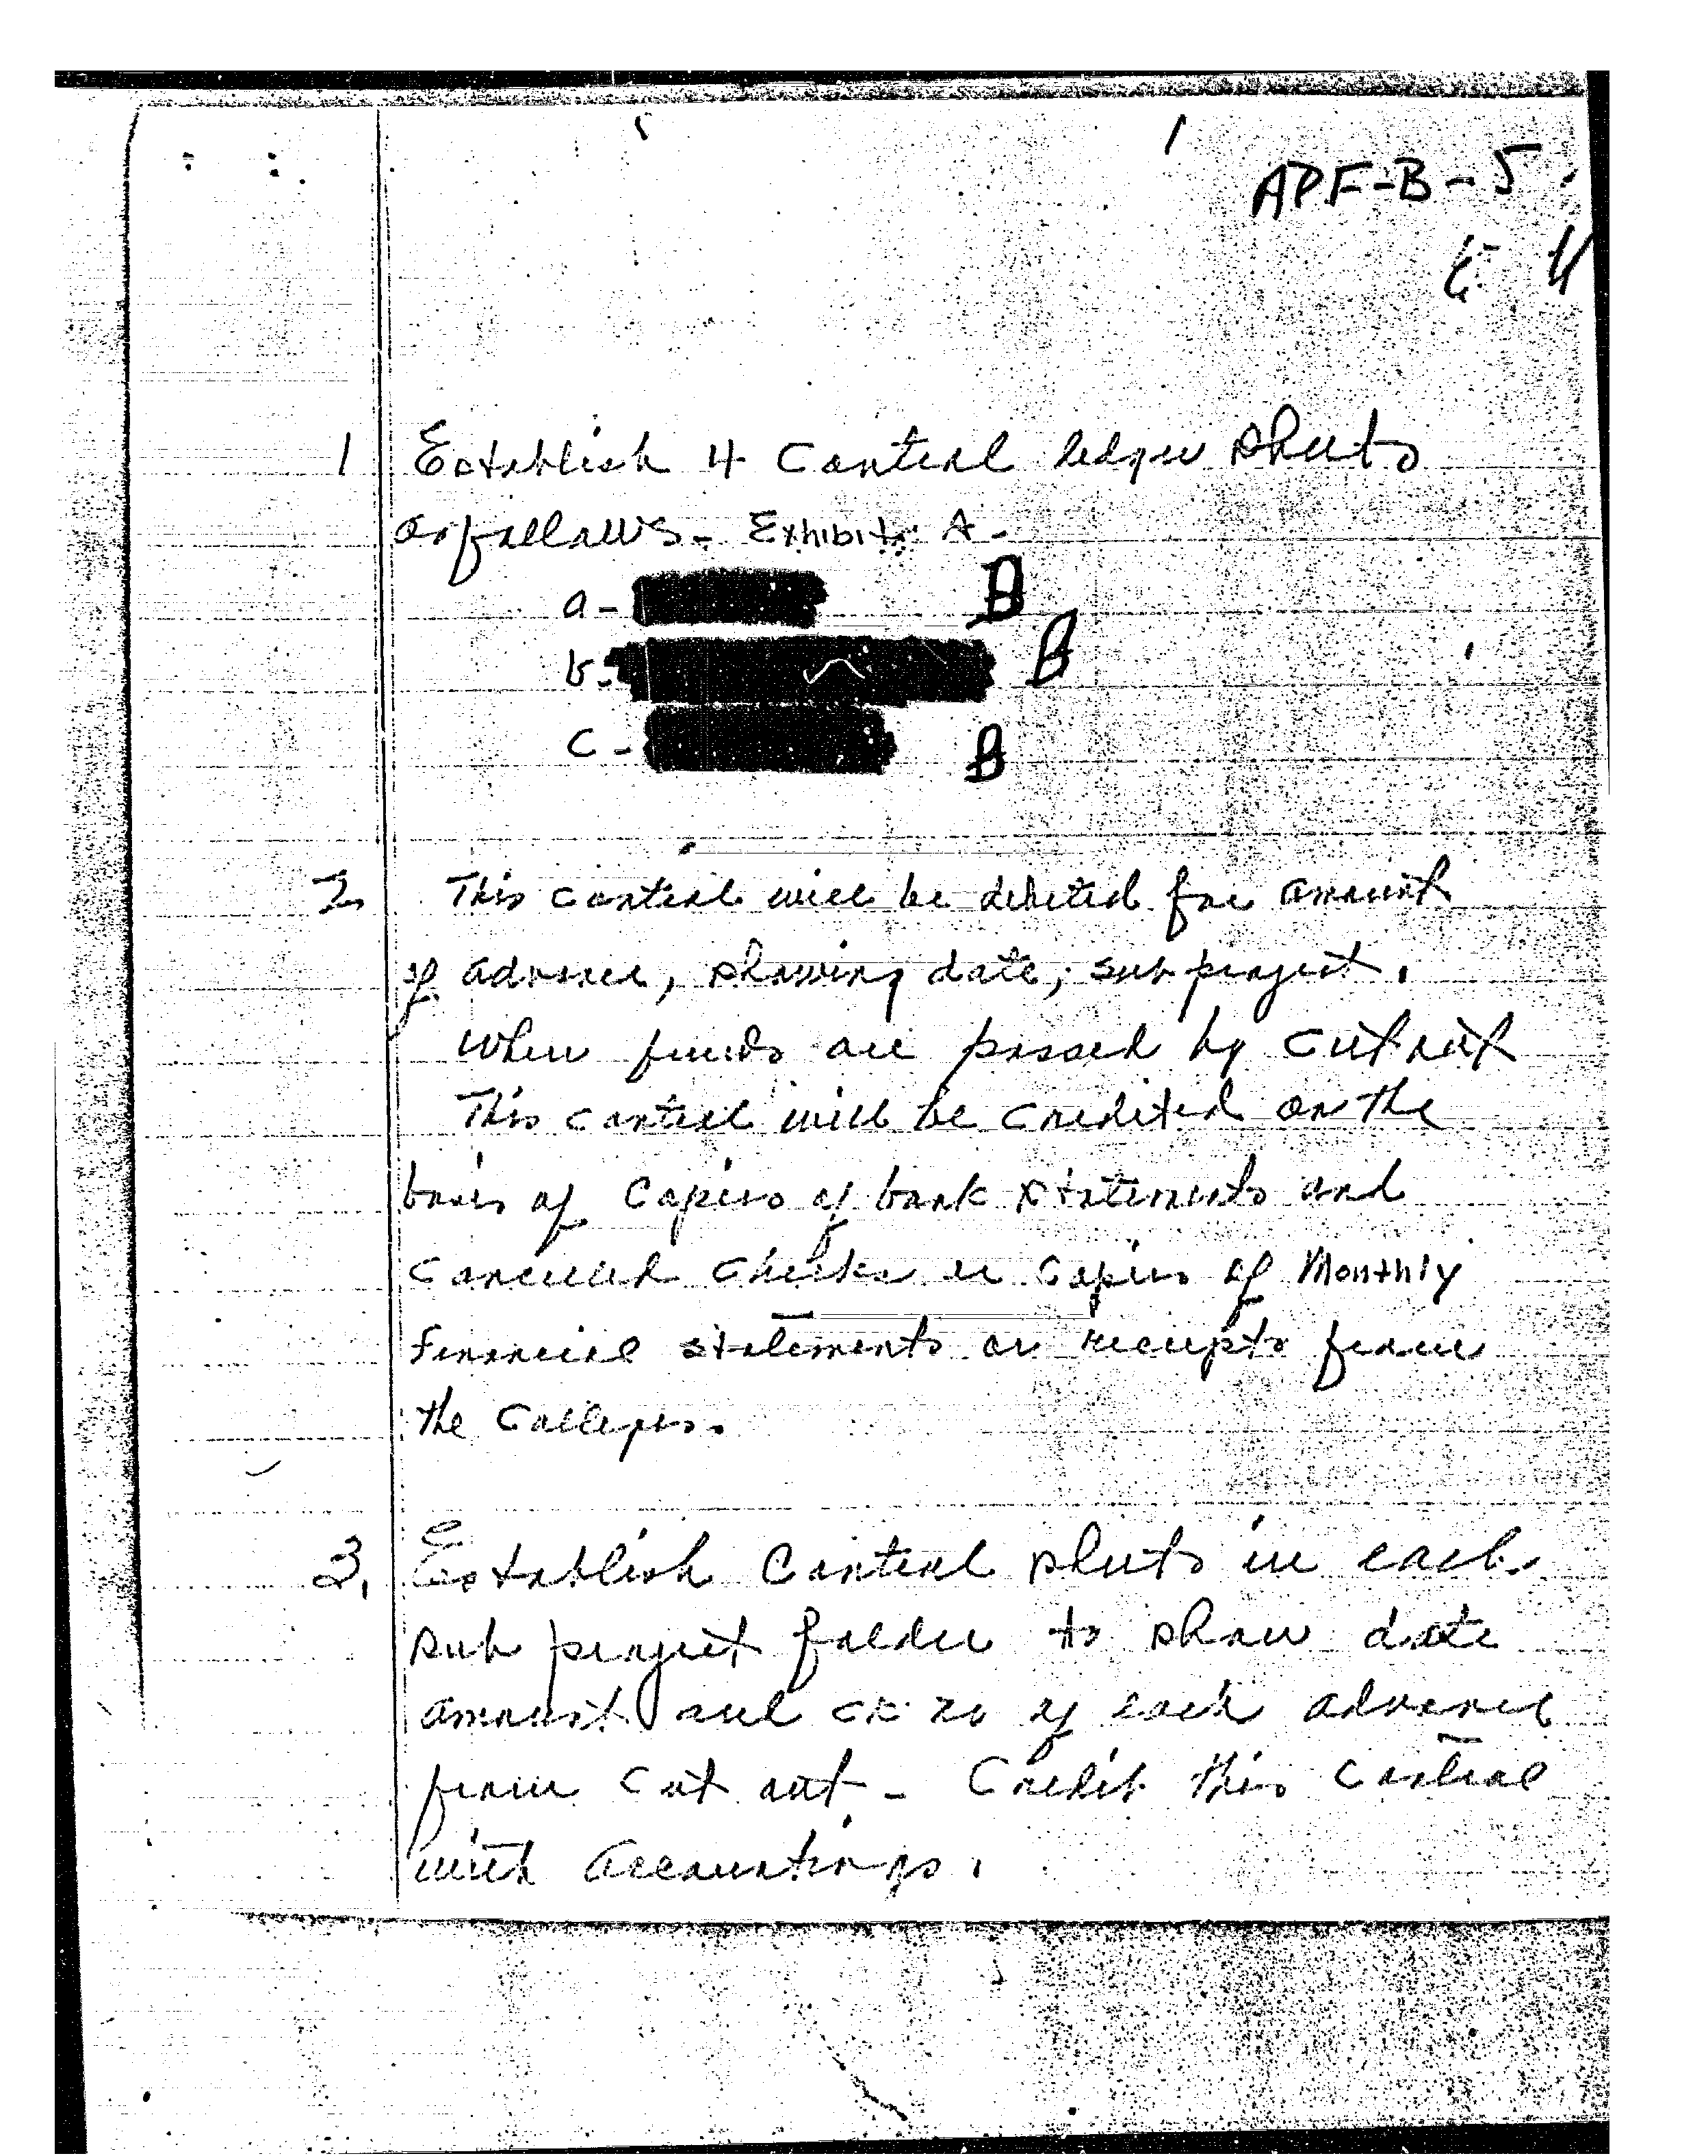 APF-B-5
1 Establish 4 Control ledger sheets
as follows - Exhibit A -
a - B
b - B
c - B
2. This control will be debited for amount
of advance, showing date, sub project.
When funds are passed by cut out
This control will be credited on the
basis of copies of bank statements and
cancelled checks or copies of Monthly
Financial statements or receipts from
the colleges.
3. Establish Control sheets in each
sub project folder to show date
amount and ck no of each advance
from cut out - Credit this control
with accountings.